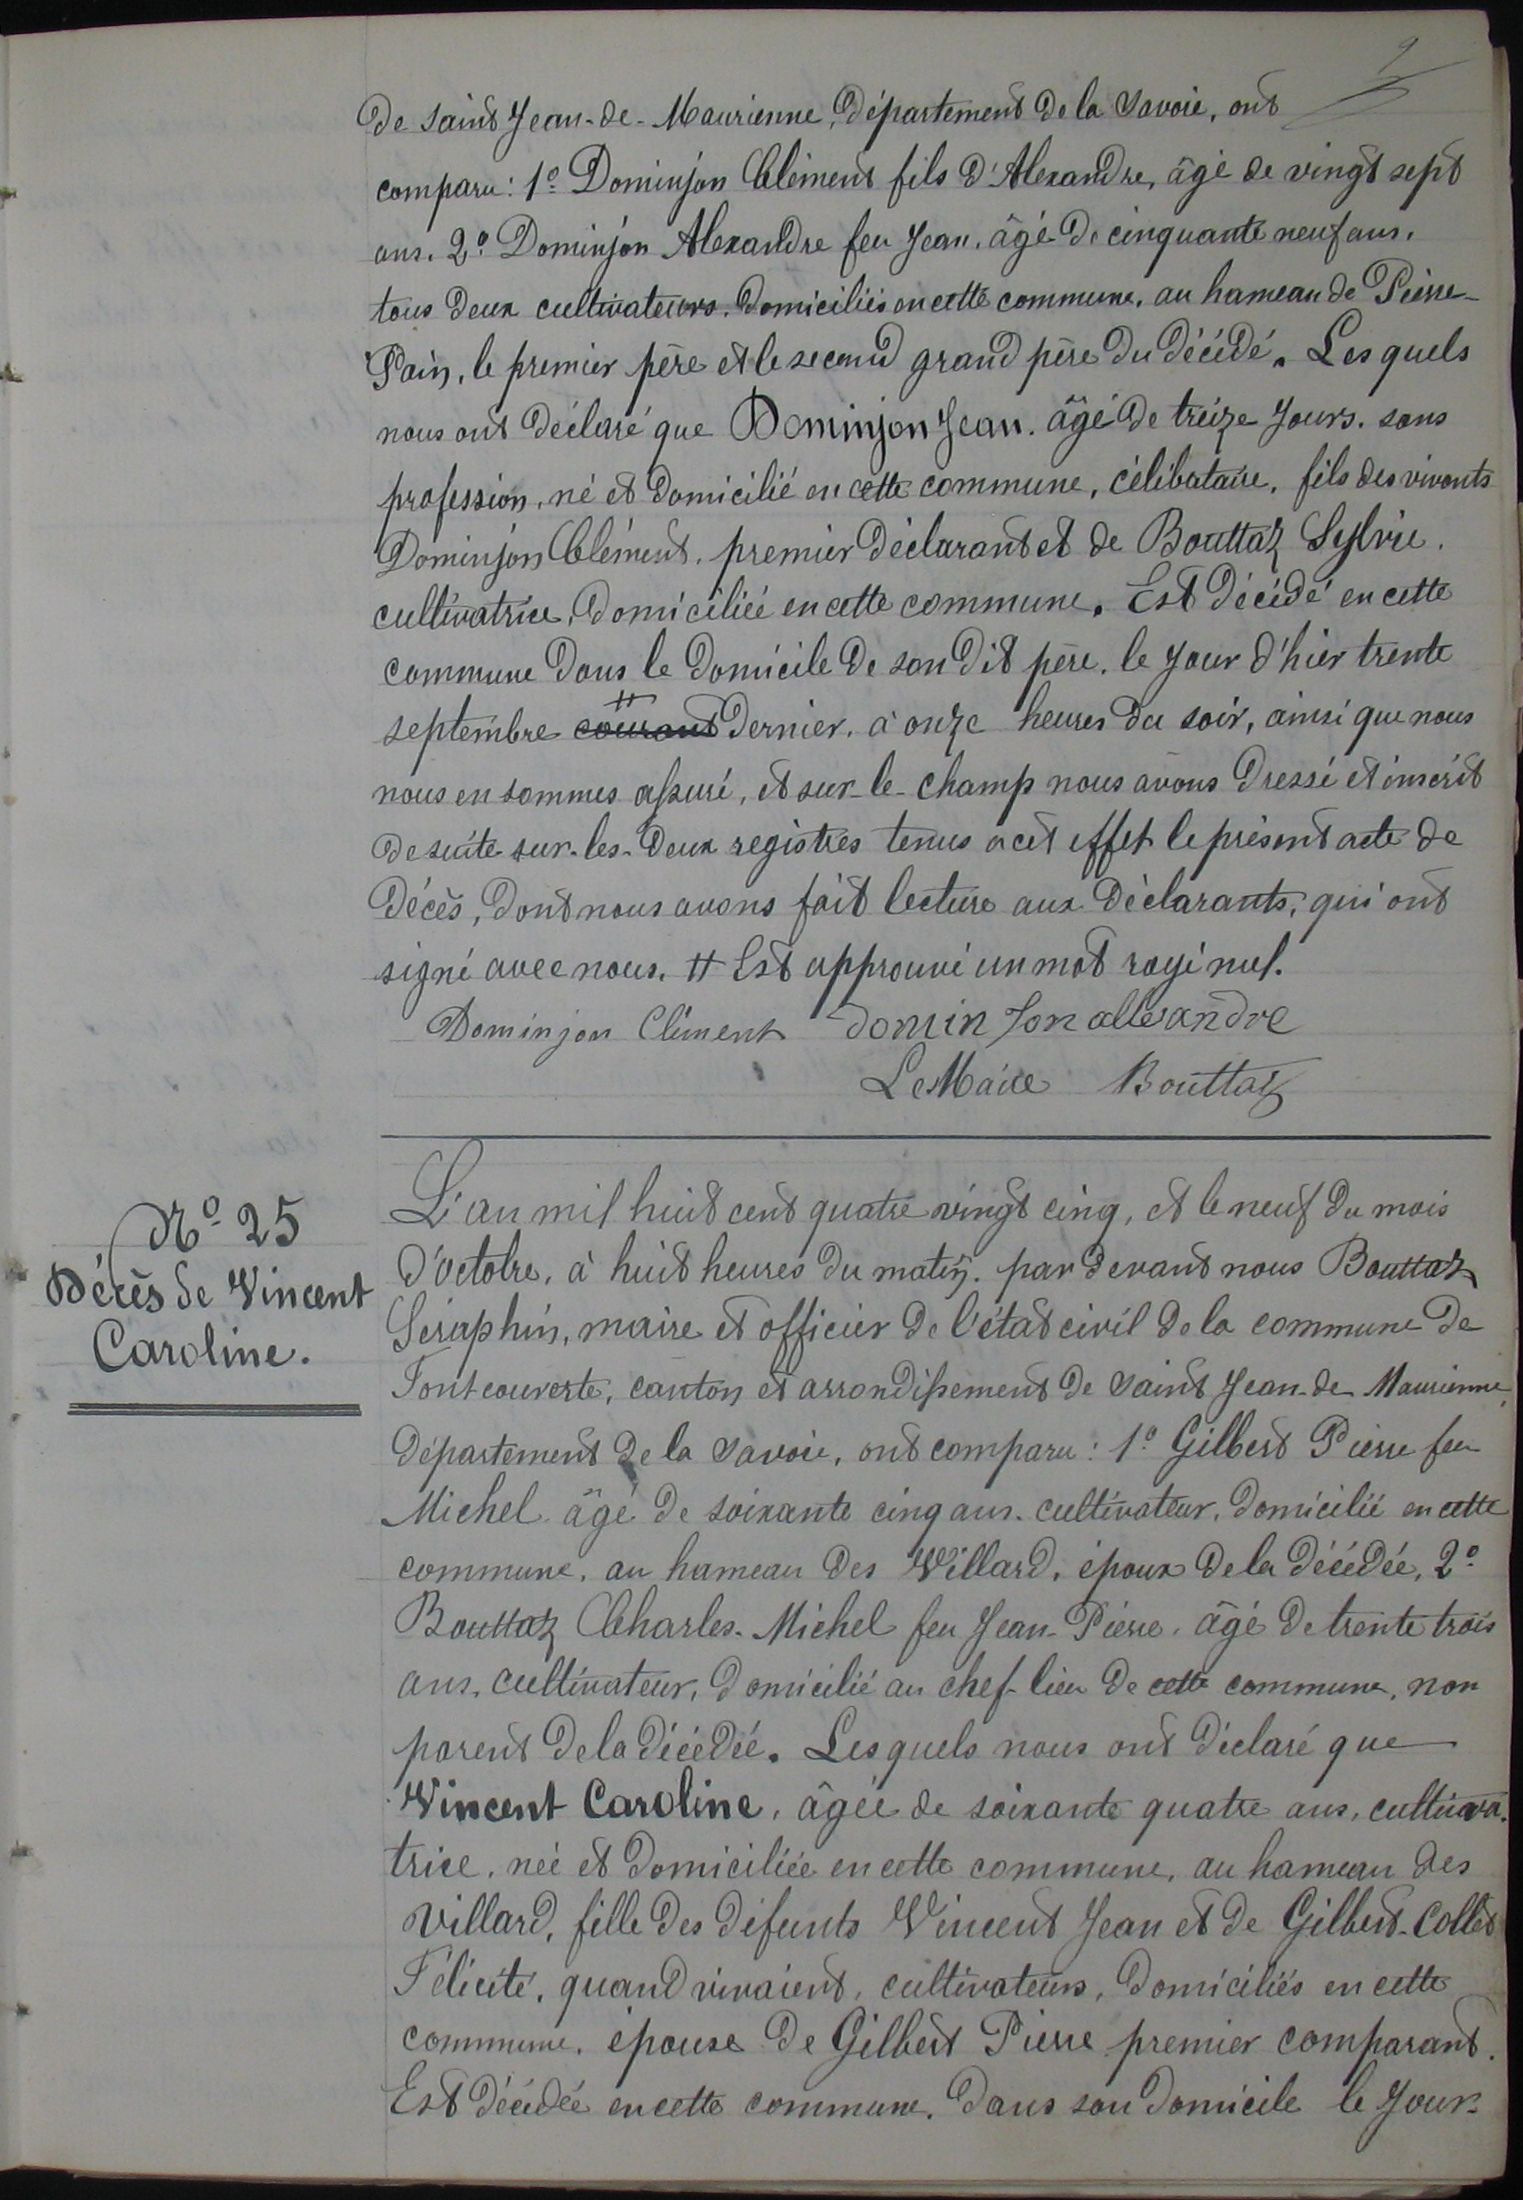 9
de Saint Jean-de-Maurienne, Département de la Savoie, ont
comparu: 1º Dominjon Clément fils d'Alexandre, âgé de vingt sept
ans. 2º Dominjon Alexandre feu Jean, âgé de cinquante neuf ans,
tous deux cultivateurs, domiciliés en cette commune, au hameau de Pierre-
Pain, le premier père et le second grand père du décédé. Les quels
nous ont déclaré que Dominjon Jean, âgé de treize jours, sans
profession, né et domicilié en cette commune, célibataire, fils des vivants
Dominjon Clément, premier déclarant et de Bouttaz Sylvie,
cultivatrice, domiciliée en cette commune. Est décédé en cette
commune dans le domicile de son dit père, le jour d'hier trente
septembre courant # dernier, à onze heures du soir, ainsi que nous
nous en sommes assuré, et sur-le-champ nous avons dressé et inscrit
de suite sur-les-deux registres tenus à cet effet le présent acte de
décès, dont nous avons fait lecture aux déclarants, qui ont
signé avec nous. # Est approuvé un mot rayé nul.
Dominjon Clément dominjon allexandre
Le Maire Bouttaz
Nº 25
Décès de Vincent
Caroline.
L'an mil huit cent quatre vingt cinq, et le neuf du mois
d'octobre, à huit heures du matin, par devant nous Bouttaz
Séraphin, maire et officier de l'état civil de la commune de
Fontcouverte, canton et arrondissement de Saint Jean-de Maurienne,
département de la Savoie, ont comparu: 1º Gilbert Pierre feu
Michel âgé de soixante cinq ans, cultivateur, domicilié en cette
commune, au hameau des Villard, époux de la décédée, 2º
Bouttaz Charles-Michel feu Jean-Pierre, âgé de trente trois
ans, cultivateur, domicilié au chef-lieu de cette commune, non
parent de la décédée. Les quels nous ont déclaré que
Vincent Caroline, âgée de soixante quatre ans, cultiva-
trice, née et domiciliée en cette commune, au hameau des
Villard, fille des défunts Vincent Jean et de Gilbert-Collet
Félicité, quand vivaient, cultivateurs, domiciliés en cette
commune, épouse de Gilbert Pierre premier comparant.
Est décédée en cette commune, dans son domicile le jour-